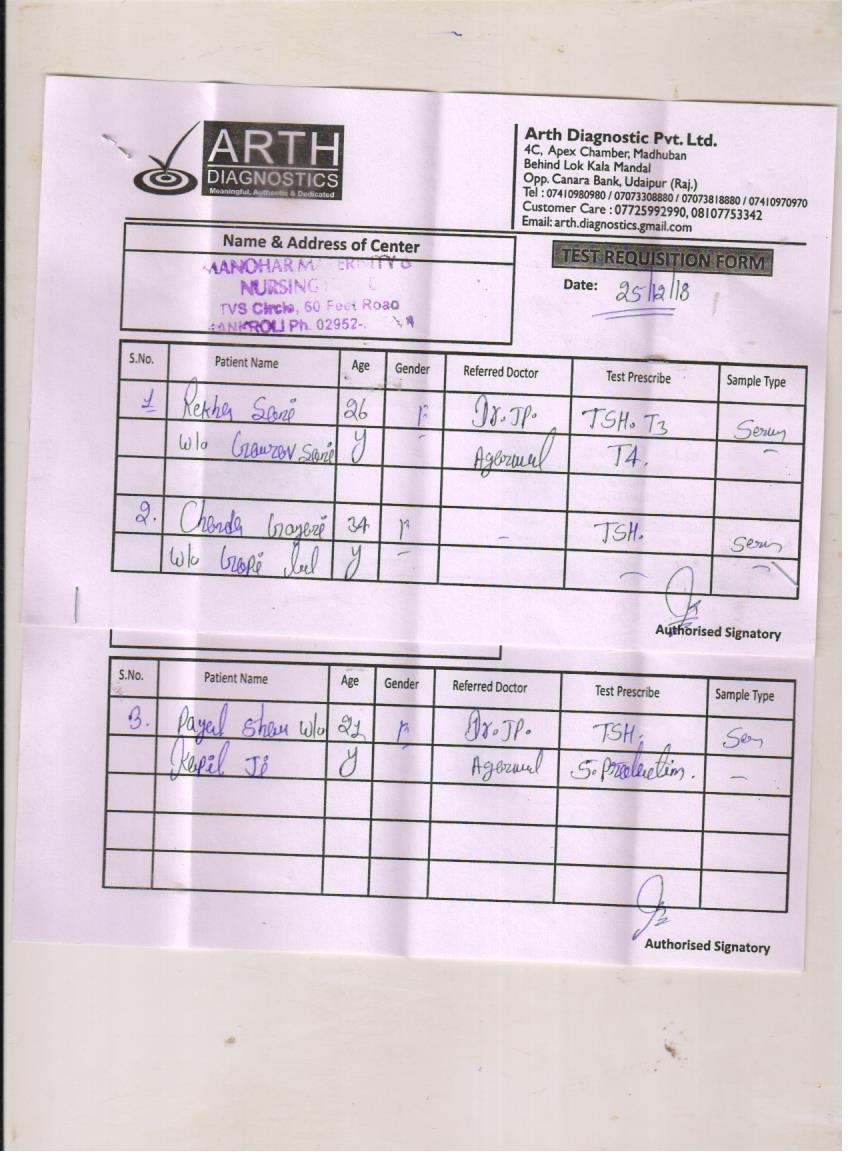 ARTH
DIAGNOSTICS
Meaningful, Authentic & Dedicated
Arth Diagnostic Pvt. Ltd.
4C, Apex Chamber, Madhuban
Behind Lok Kala Mandal
Opp. Canara Bank, Udaipur (Raj.)
Tel : 07410980980 / 07073308880 / 07073818880 / 07410970970
Customer Care : 07725992990, 08107753342
Email: arth.diagnostics.gmail.com
Name & Address of Center
TEST REQUISITION FORM
MANOHAR
NURSING
TVS Circle, 60 Feet Road
Ph. 02952-
Date: 25/12/18
S.No. Patient Name Age Gender Referred Doctor Test Prescribe Sample Type
1 Rekha Soni 26 F Dr. JP. TSH. T3 Serum
w/o Gourav Soni Y Agarwal T4.
2. Chanda 34 F - TSH. Serum
w/o Gopi Lal Y
Authorised Signatory
S.No. Patient Name Age Gender Referred Doctor Test Prescribe Sample Type
3. Payal w/o 21 F Dr. JP. TSH.
Kapil Ji Y Agarwal S. Prolactin. -
Authorised Signatory